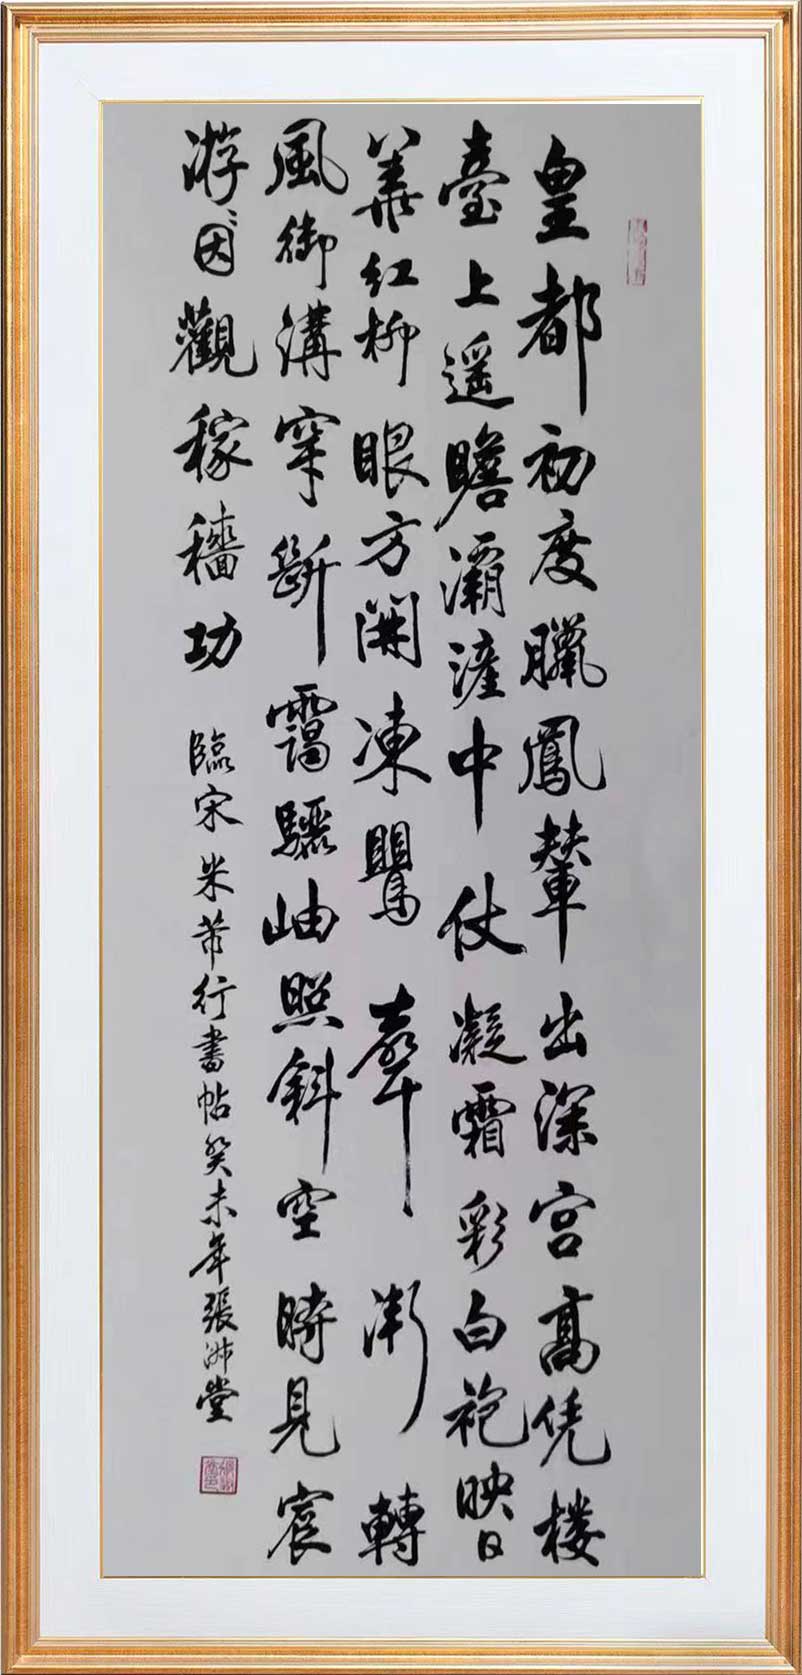 皇都初度臘鳳輦出深宮高凭楼
臺上遥瞻灞滻中仗凝霜彩白袍映日
華紅柳眼方開凍鸎聲漸轉
風御溝穿斷靄驪岫照斜空時見宸
游因觀稼穡功 臨宋米芾行書帖癸未年張沛堂